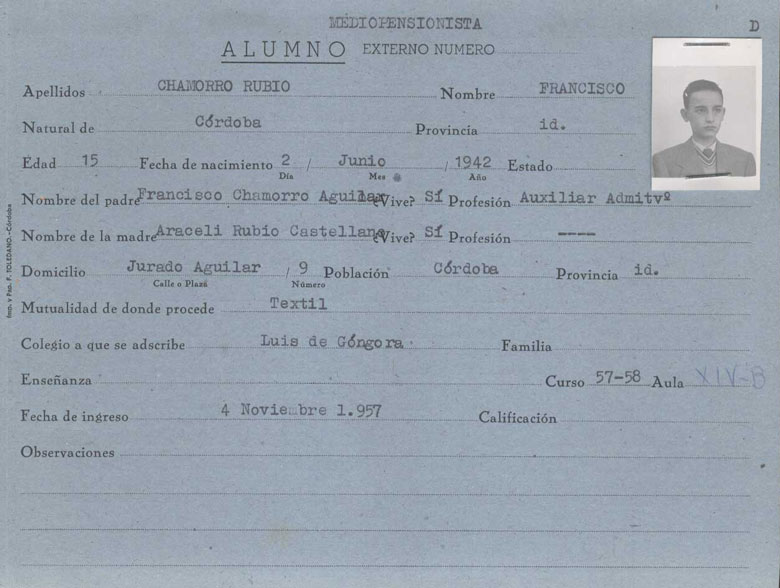 MEDIOPENSIONISTA D
ALUMNO EXTERNO NUMERO
Apellidos CHAMORRO RUBIO Nombre FRANCISCO
Natural de Córdoba Provincia id.
Edad 15 Fecha de nacimiento 2 / Junio / 1942 Estado
Día Mes Año
Nombre del padre Francisco Chamorro Aguilar ¿Vive? Sí Profesión Auxiliar Admitvº
Nombre de la madre Araceli Rubio Castellano ¿Vive? Sí Profesión ----
Domicilio Jurado Aguilar / 9 Población Córdoba Provincia id.
Calle o Plaza Número
Mutualidad de donde procede Textil
Colegio a que se adscribe Luis de Góngora Familia
Enseñanza Curso 57-58 Aula XIV-B
Fecha de ingreso 4 Noviembre 1.957 Calificación
Observaciones
Imp. y Pap. F. TOLEDANO.-Córdoba